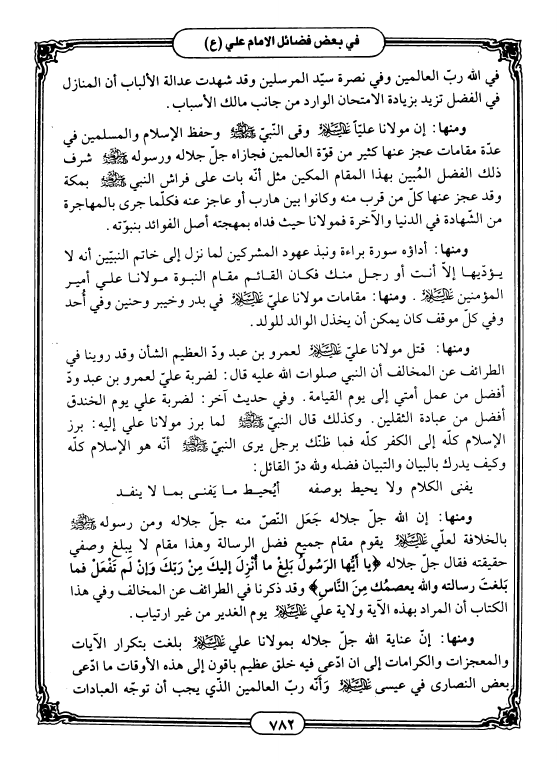 في بعض فضائل الامام علي (ع)
في الله ربّ العالمين وفي نصرة سيّد المرسلين وقد شهدت عدالة الألباب أن المنازل
في الفضل تزيد بزيادة الامتحان الوارد من جانب مالك الأسباب .
ومنها: إن مولانا عليّاً عليه السلام وقى النّبيّ ﷺ وحفظ الإسلام والمسلمين في
عدّة مقامات عجز عنها كثير من قوّة العالمين فجازاه جلّ جلاله ورسوله ﷺ شرف
ذلك الفضل المُبين بهذا المقام المكين مثل أنّه بات على فراش النبي ﷺ بمكة
وقد عجز عنها كلّ من قرب منه وكانوا بين هارب أو عاجز عنه فكلّما جرى بالمهاجرة
من الشّهادة في الدنيا والآخرة فمولانا حيث فداه بمهجته أصل الفوائد بنبوّته .
ومنها: أداؤه سورة براءة ونبذ عهود المشركين لما نزل إلى خاتم النبيّين أنه لا
يؤدّيها إلاّ أنت أو رجل منك فكان القائم مقام النبوة مولانا علي أمير
المؤمنين عليه السلام . ومنها: مقامات مولانا عليّ عليه السلام في بدر وخيبر وحنين وفي أُحد
وفي كلّ موقف كان يمكن أن يخذل الوالد للولد.
ومنها: قتل مولانا عليّ عليه السلام لعمرو بن عبد ودّ العظيم الشأن وقد روينا في
الطرائف عن المخالف أن النبي صلوات الله عليه قال: لضربة عليّ لعمرو بن عبد ودّ
أفضل من عمل أمتي إلى يوم القيامة. وفي حديث آخر: لضربة علي يوم الخندق
أفضل من عبادة الثقلين. وكذلك قال النبيّ ﷺ لما برز مولانا علي إليه: برز
الإسلام كلّه إلى الكفر كلّه فما ظنّك برجل يرى النبيّ ﷺ أنّه هو الإسلام كلّه
وكيف يدرك بالبيان والتبيان فضله ولله درّ القائل:
يفنى الكلام ولا يحيط بوصفه أيُحيط ما يَفنى بما لا ينفد
ومنها: إن الله جلّ جلاله جَعَل النّصّ منه جلّ جلاله ومن رسوله ﷺ
بالخلافة لعلّي عليه السلام يقوم مقام جميع فضل الرسالة وهذا مقام لا يبلغ وصفي
حقيقته فقال جلّ جلاله ﴿يا أيُّها الرسُولُ بَلغْ ما أُنْزِلَ إليكَ مِنْ رَبّكَ وَإنْ لَم تَفْعَلْ فما
بَلغتَ رسالته والله يعصمُكَ مِنَ النَّاسِ﴾ وقد ذكرنا في الطرائف عن المخالف وفي هذا
الكتاب أن المراد بهذه الآية ولاية علي عليه السلام يوم الغدير من غير ارتياب.
ومنها: إنّ عناية الله جلّ جلاله بمولانا علي عليه السلام بلغت بتكرار الآيات
والمعجزات والكرامات إلى ان ادّعى فيه خلق عظيم باقون إلى هذه الأوقات ما ادّعى
بعض النصارى في عيسى عليه السلام وَأنّه ربّ العالمين الذّي يجب أن توجّه العبادات
٧٨٢